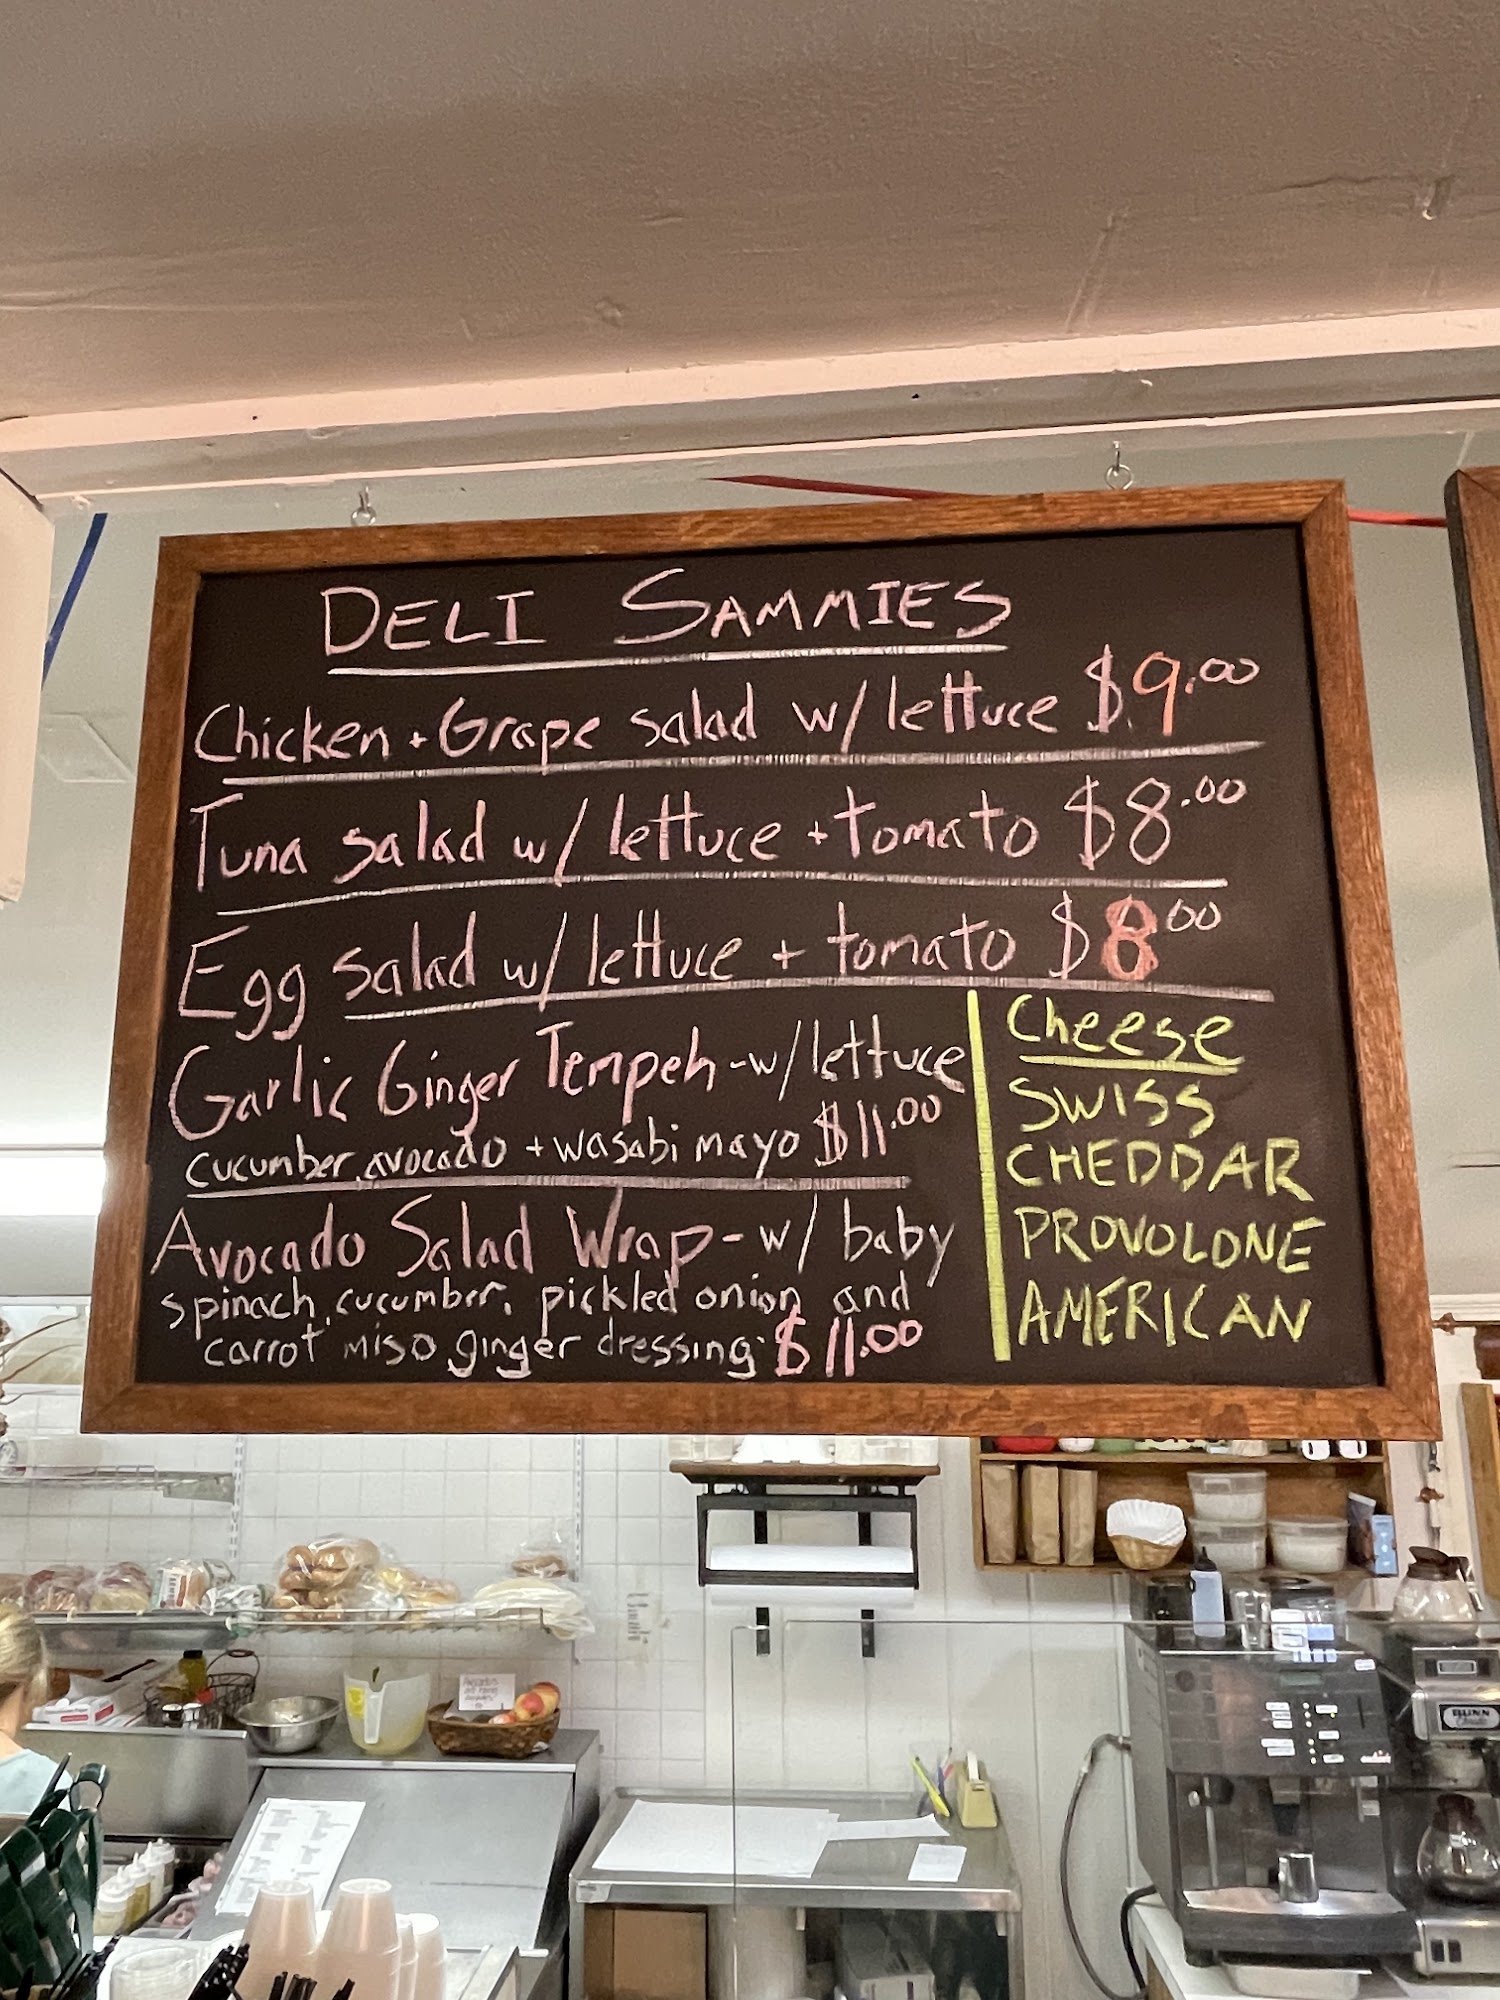 DELI SAMMIES
Chicken + Grape salad w/ lettuce $9.00
Tuna salad w/ lettuce + tomato $8.00
Egg salad w/ lettuce + tomato $8.00
Garlic Ginger Tempeh - w/ lettuce
cucumber, avocado + wasabi mayo $11.00
Avocado Salad Wrap - w/ baby
spinach, cucumber, pickled onion and
carrot miso ginger dressing $11.00
Cheese
SWISS
CHEDDAR
PROVOLONE
AMERICAN
BUNN